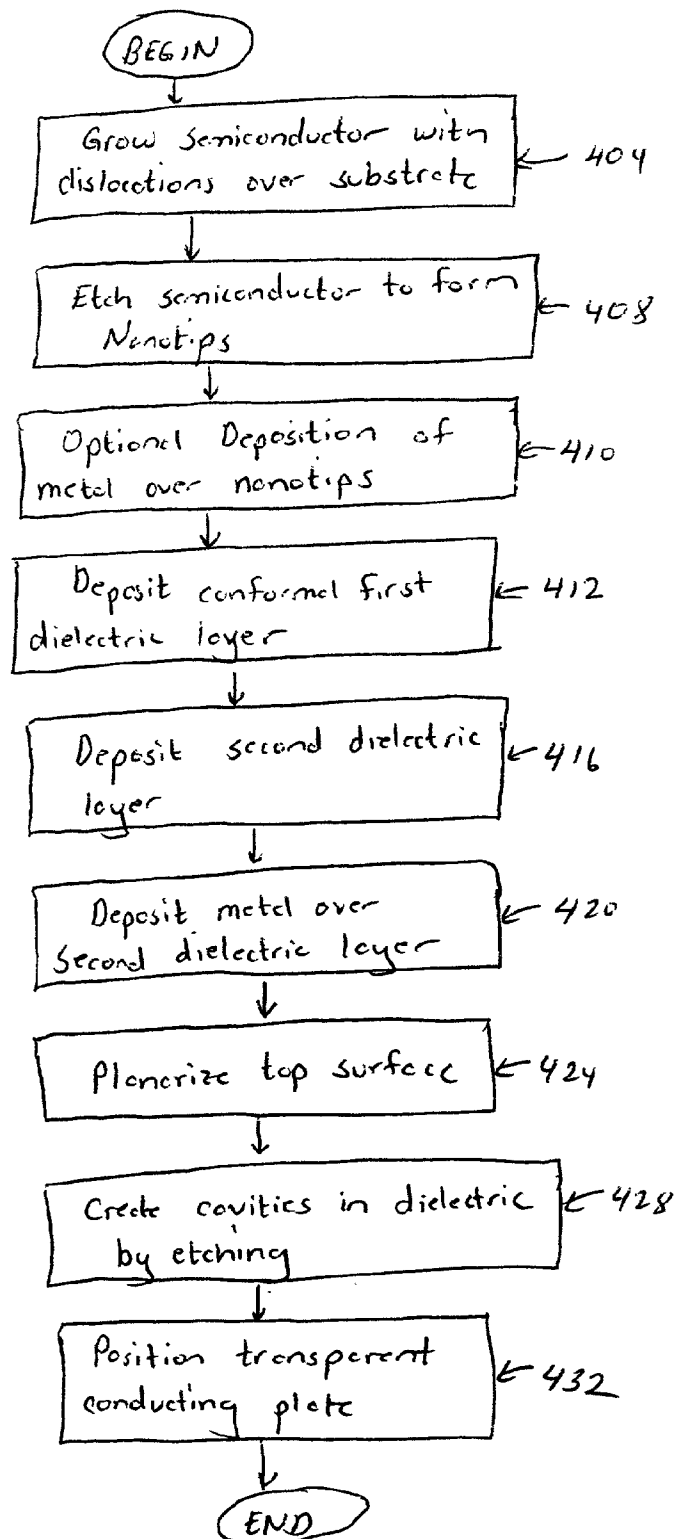 BEGIN
Grow semiconductor with
dislocations over substrate
404
Etch semiconductor to form
Nanotips
408
Optional Deposition of
metal over nanotips
410
Deposit conformal first
dielectric layer
412
Deposit second dielectric
layer
416
Deposit metal over
second dielectric layer
420
Planarize top surface
424
Create cavities in dielectric
by etching
428
Position transparent
conducting plate
432
END